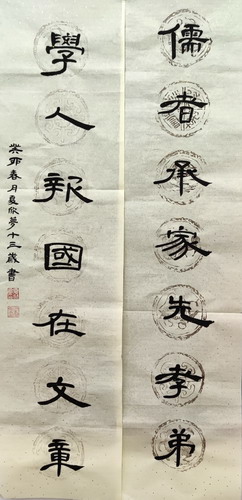 儒者承家先孝弟
學人報國在文章
癸卯春月夏欣夢十三歲書